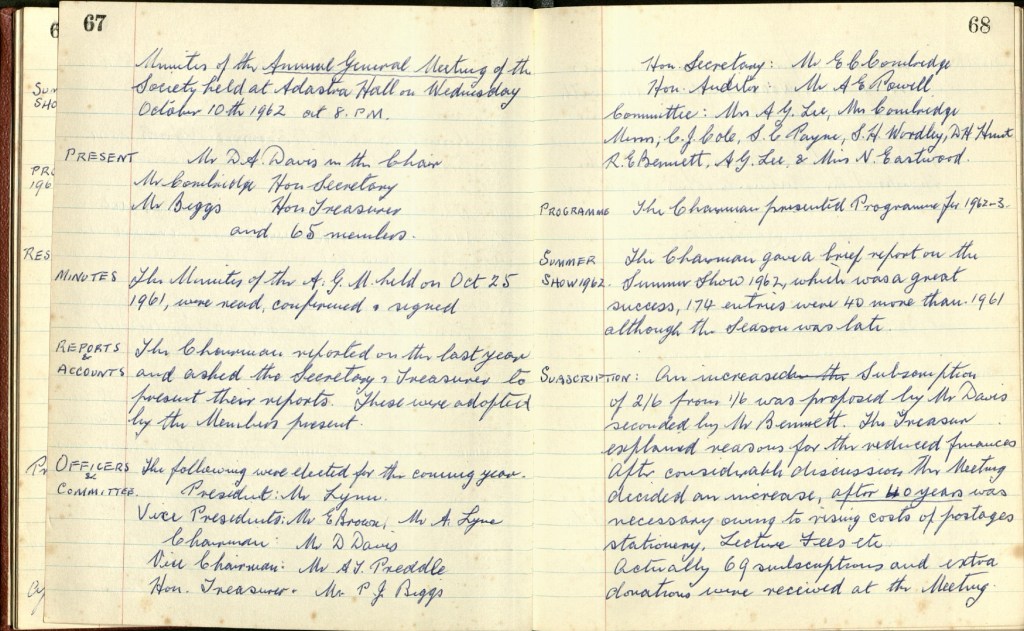 67
Minutes of the Annual General Meeting of the
Society held at Adastra Hall on Wednesday
October 10th 1962 at 8. P.M.
PRESENT Mr D.A. Davis in the Chair
Mr Combridge Hon Secretary
Mr Biggs Hon Treasurer
and 65 members.
MINUTES The Minutes of the A.G.M. held on Oct 25
1961, were read, confirmed & signed
REPORTS & ACCOUNTS The Chairman reported on the last year
and asked the Secretary & Treasurer to
present their reports. These were adopted
by the Members present.
OFFICERS & COMMITTEE. The following were elected for the coming year.
President: Mr Lynn.
Vice Presidents: Mr E Brown, Mr A. Lyne
Chairman: Mr D Davis
Vice Chairman: Mr A.J. Preddle
Hon. Treasurer. Mr P J Biggs
68
Hon. Secretary: Mr E C Combridge
Hon. Auditor: Mr A E Powell
Committee: Mrs A.G. Lee, Mrs Combridge
Messrs, C.J. Cole, S.C. Payne, S.H. Wordley, D.H. Hunt
R.E Bennett, A.G. Lee, & Miss N. Eastwood.
PROGRAMME The Chairman presented Programme for 1962-3.
SUMMER SHOW 1962. The Chairman gave a brief report on the
Summer Show 1962, which was a great
success, 174 entries were 40 more than 1961
although the Season was late.
SUBSCRIPTION: An increased in the Subscription
of 2/6 from 1/6 was proposed by Mr Davis
seconded by Mr Bennett. The Treasurer
explained reasons for the reduced finances
After considerable discussion the Meeting
decided an increase, after 40 years was
necessary owing to rising costs of postages
stationery, Lecture Fees etc
Actually 69 subscriptions and extra
donations were received at the Meeting.